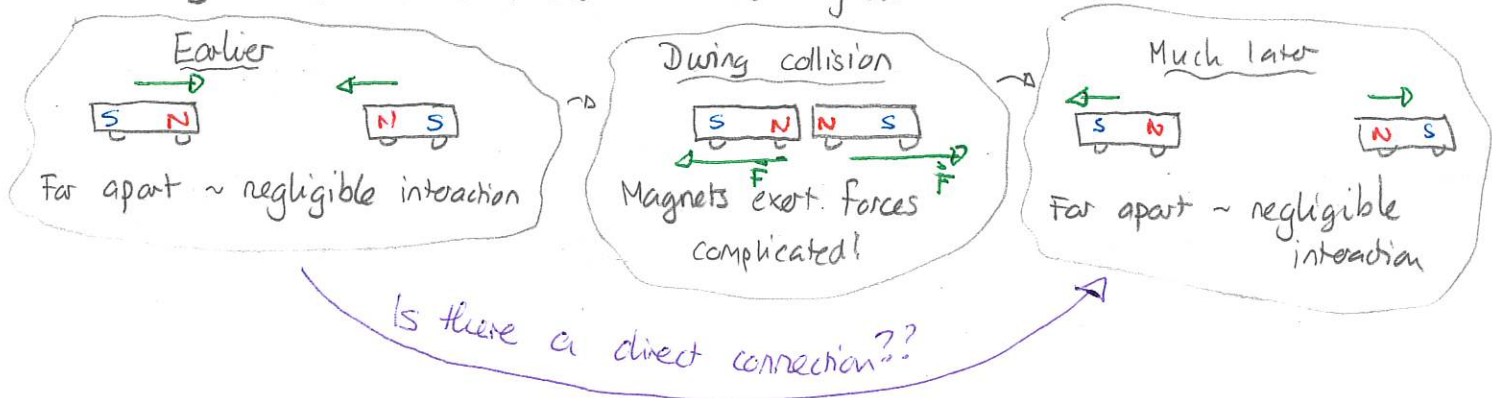 Earlier
S N
N S
Far apart ~ negligible interaction
During collision
S N N S
F F
Magnets exert. forces
complicated!
Much later
S N
N S
Far apart ~ negligible
interaction
Is there a direct connection??